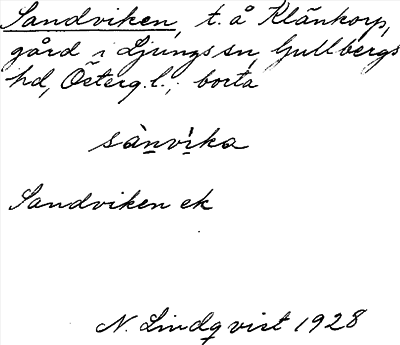 Sandviken, t. å Klänkorp,
gård i Ljungs sn, Gullbergs
hd, Österg.l.; borta
sànvi̇̀ka
Sandviken ek
N. Lindqvist 1928